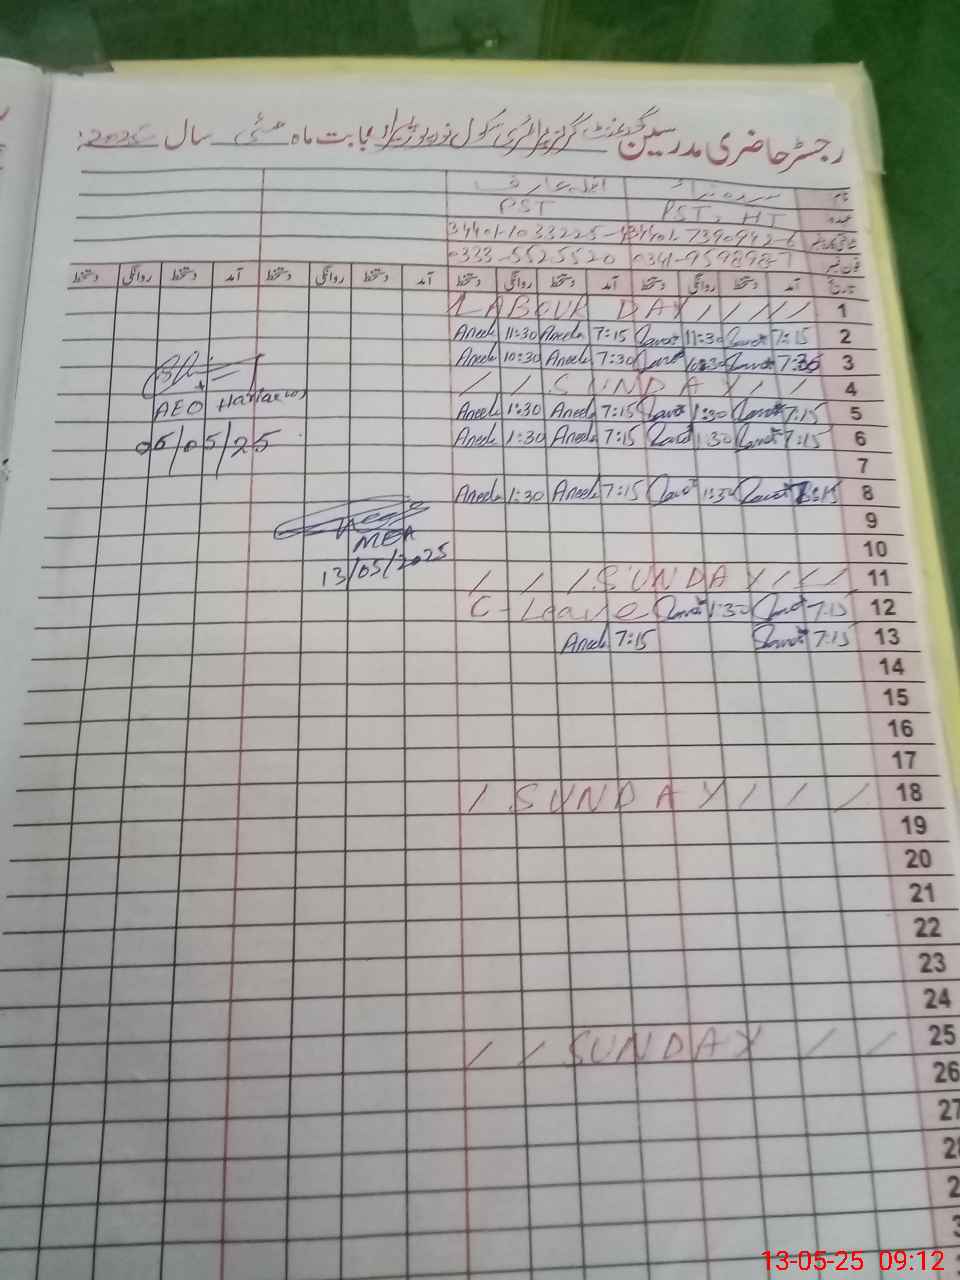 رجسٹر حاضری مدرسین گورنمنٹ گرلز پرائمری سکول بابت ماہ مئی سال 2025
نام
عہدہ PST, HT PST
34401-7390942-6 34401-1033225-4
فون نمبر 0341-9598987 0333-5525520
تاریخ آمد دستخط روانگی دستخط آمد دستخط روانگی دستخط آمد دستخط روانگی دستخط آمد دستخط روانگی دستخط
LABOUR DAY / / / / / 1
Aneela 11:30 Aneela 7:15 11:30 7:15 2
Aneela 10:30 Aneela 7:30 10:30 7:30 3
/ / S U N D A Y / / 4
Aneela 1:30 Aneela 7:15 1:30 7:15 5
Aneela 1:30 Aneela 7:15 1:30 7:15 6
7
Aneela 1:30 Aneela 7:15 1:30 7:15 8
9
10
/ / / SUNDAY / / / 11
C-Leave 1:30 7:15 12
Aneela 7:15 7:15 13
14
15
16
17
/ SUNDAY / / / 18
19
20
21
22
23
24
/ / SUNDAY / / 25
26
27
AEO
06/05/25
MEA
13/05/2025
13-05-25 09:12